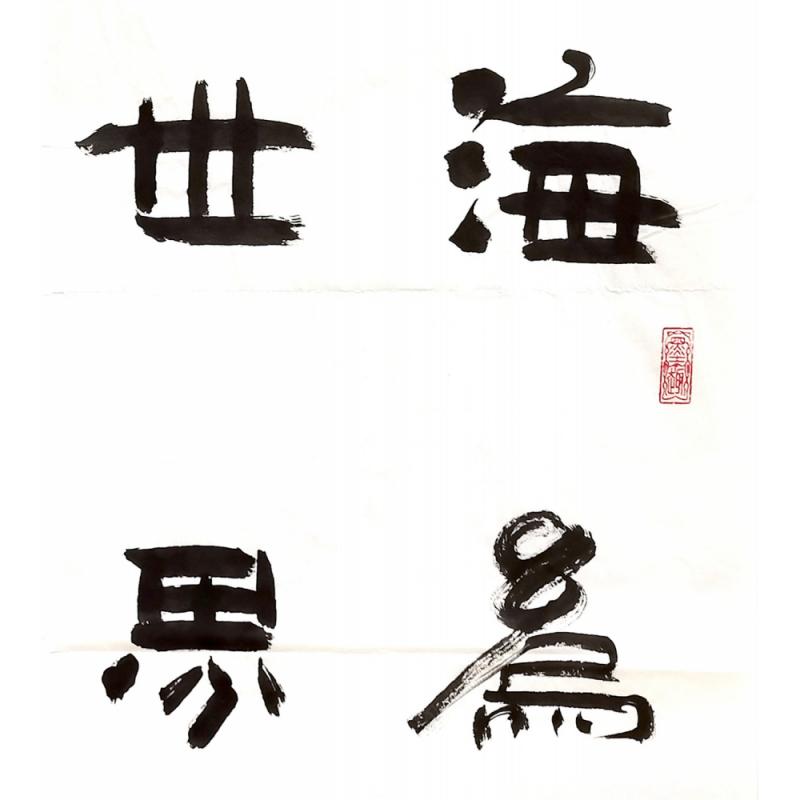 海為
世界